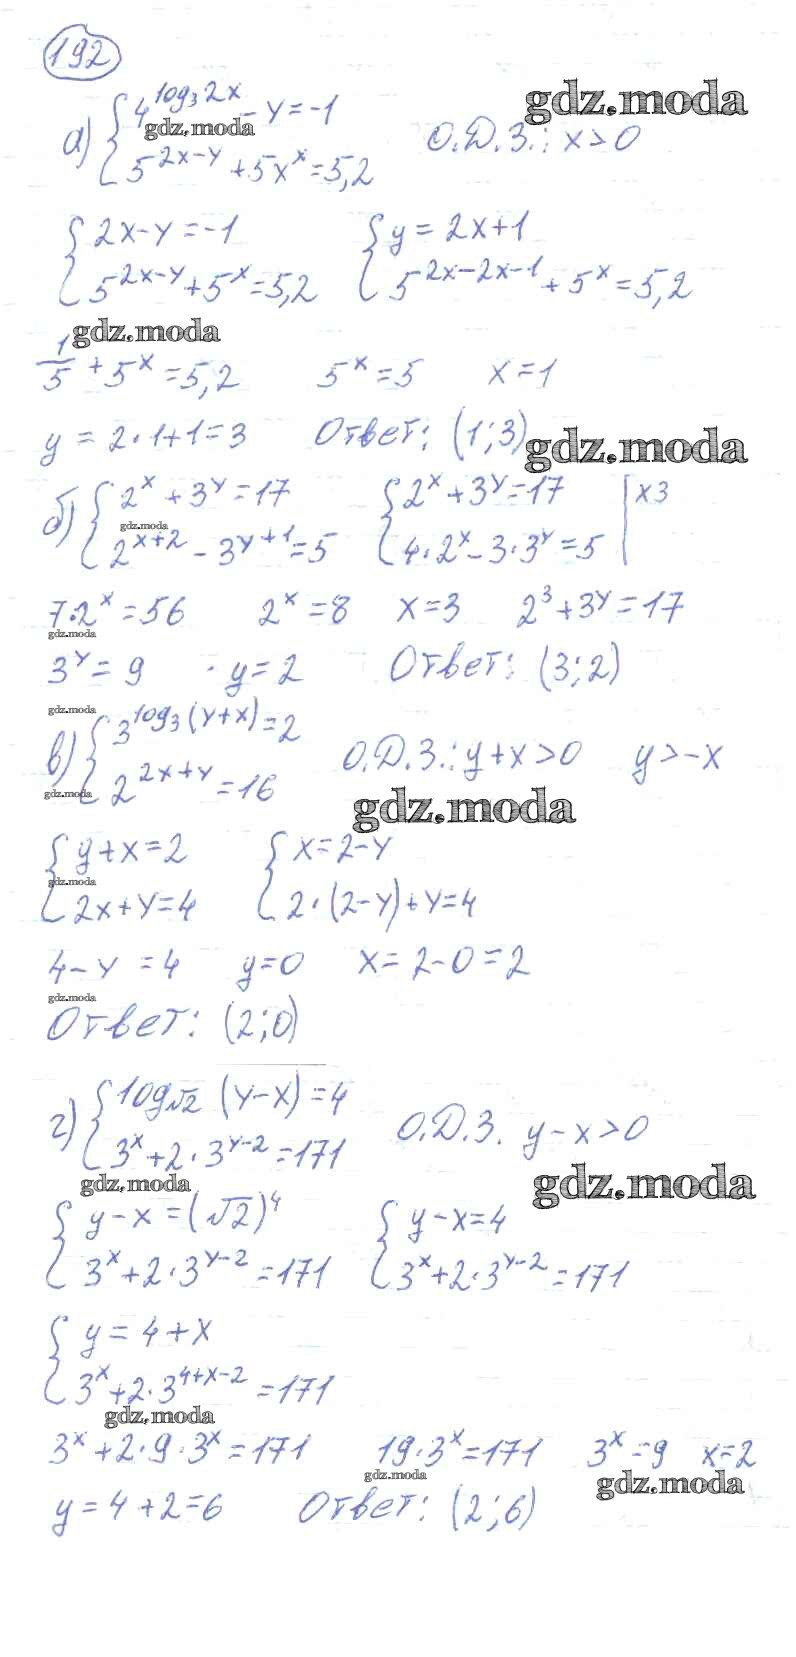 192
gdz.moda
а) { 4^(log₃2x) - y = -1
gdz.moda
О.Д.З.: x > 0
5^(2x-y) + 5x^x = 5,2
{ 2x - y = -1 { y = 2x + 1
5^(2x-y) + 5^x = 5,2 5^(2x-2x-1) + 5^x = 5,2
gdz.moda
1/5 + 5^x = 5,2 5^x = 5 x = 1
y = 2·1+1=3 Ответ: (1;3)
gdz.moda
б) { 2^x + 3^y = 17 { 2^x + 3^y = 17 | x3
gdz.moda
2^(x+2) - 3^(y+1) = 5 4·2^x - 3·3^y = 5
7·2^x = 56 2^x = 8 x = 3 2^3 + 3^y = 17
gdz.moda
3^y = 9 · y = 2 Ответ: (3;2)
gdz.moda
в) { 3^(log₃(y+x)) = 2
О.Д.З.: y+x > 0 y > -x
2^(2x+y) = 16
gdz.moda
gdz.moda
{ y + x = 2 { x = 2 - y
gdz.moda
2x + y = 4 2·(2-y) + y = 4
4 - y = 4 y = 0 x = 2 - 0 = 2
gdz.moda
Ответ: (2;0)
г) { log√2 (y-x) = 4
О.Д.З. y - x > 0
3^x + 2·3^(y-2) = 171
gdz.moda
gdz.moda
{ y - x = (√2)^4 { y - x = 4
3^x + 2·3^(y-2) = 171 3^x + 2·3^(y-2) = 171
{ y = 4 + x
3^x + 2·3^(4+x-2) = 171
gdz.moda
3^x + 2·9·3^x = 171 19·3^x = 171 3^x = 9 x = 2
gdz.moda
gdz.moda
y = 4 + 2 = 6 Ответ: (2;6)